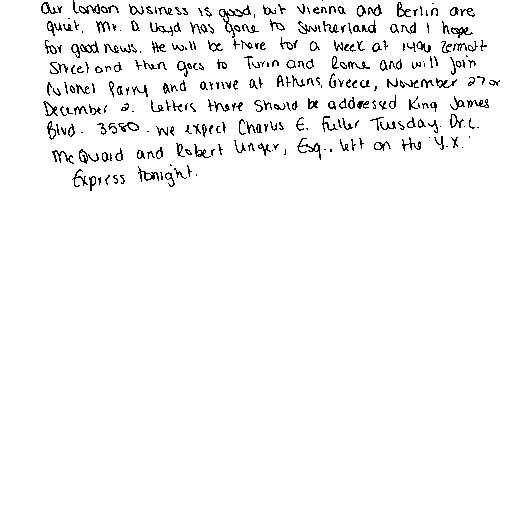 Our London business is good, but Vienna and Berlin are
quiet. Mr. D. Lloyd has gone to Switzerland and I hope
for good news. He will be there for a week at 1496 Zermott
Street and then goes to Turin and Rome and will join
Colonel Parry and arrive at Athens, Greece, November 27 or
December 2. Letters there should be addressed King James
Blvd. 3580. We expect Charles E. Fuller Tuesday. Dr. L.
McQuaid and Robert Unger, Esq., left on the 'Y.X.'
Express tonight.